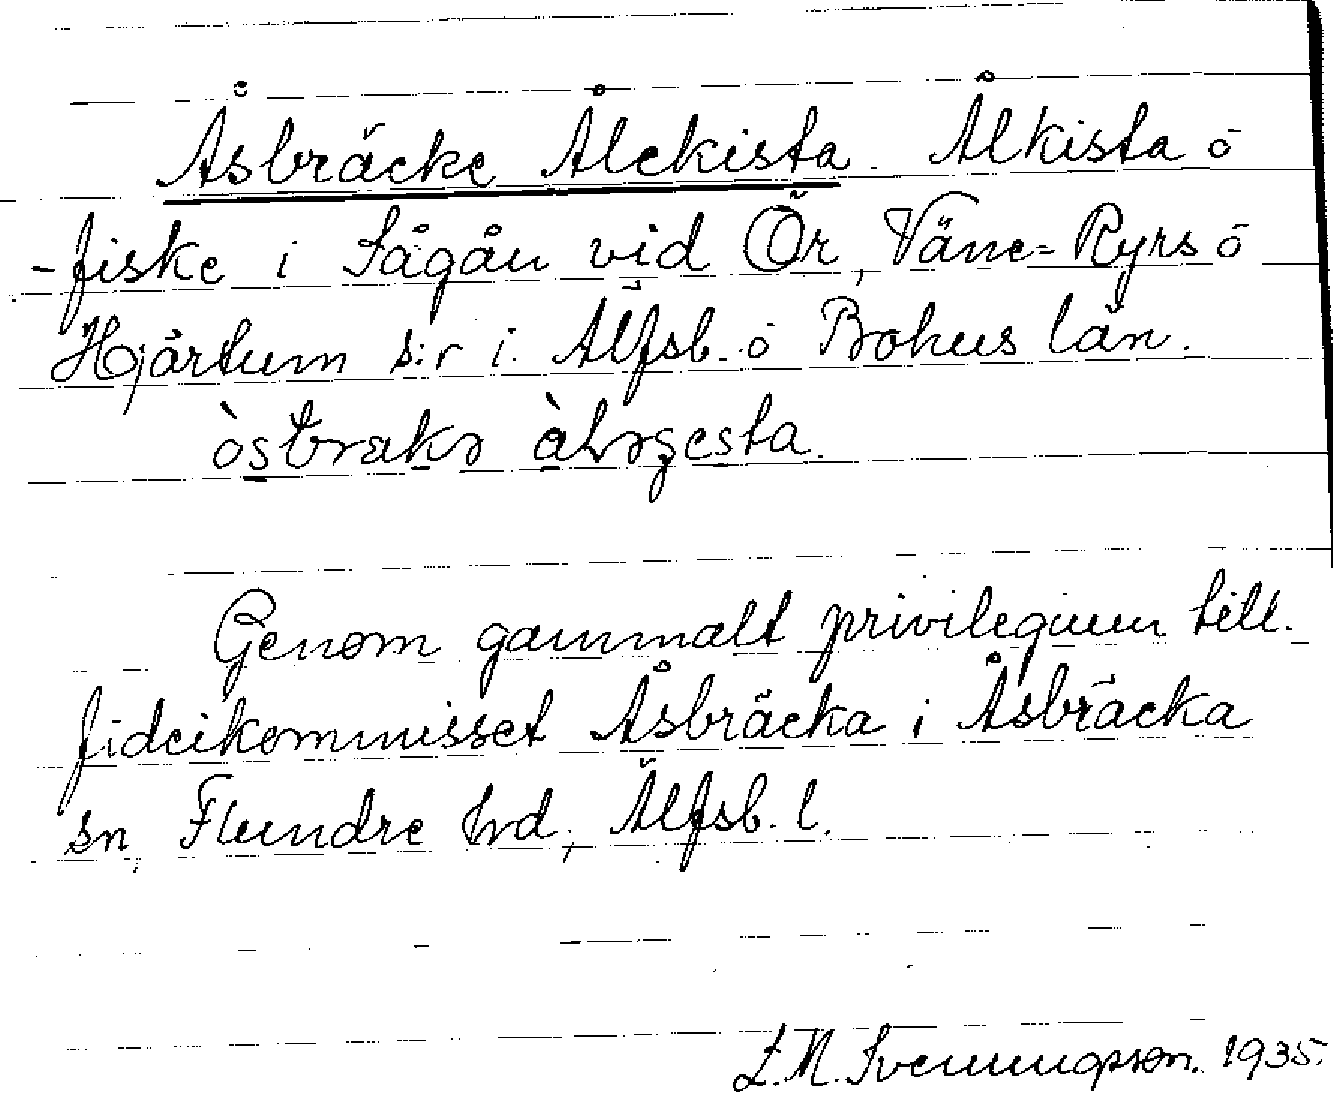 Åsbräcke Ålekista. Ålkista o
-fiske i Sågån vid Ör, Väne-Ryrs o
Hjärtum s:r i. Älfsb. o Bohus län.
Genom gammalt privilegium till
fideikommisset Åsbräcka i Åsbräcka
sn, Flundre hrd, Älfsb. l.
L. M. Svenungsson. 1935.